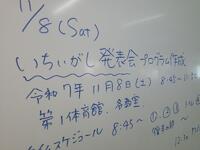 11/8(Sat)
いちいがし発表会プログラム作成
令和7年 11月8日(土) 8:45~11:
第1体育館、多教室
スケジュール 8:45~ ① ② ③
12:30